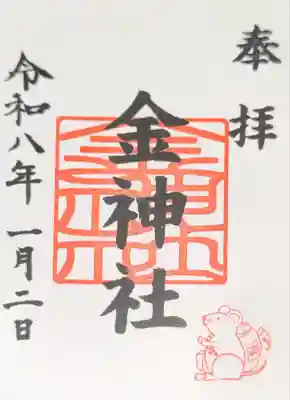 奉拝
金神社
令和八年 一月二日